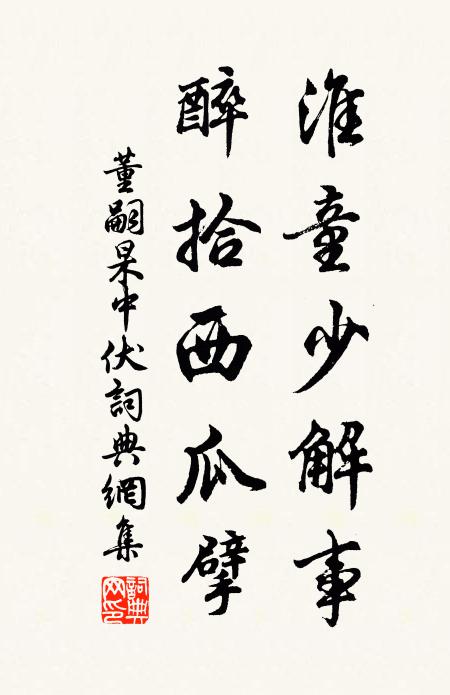 淮童少解事
醉拾西瓜擘
董嗣杲中伏詞典網集